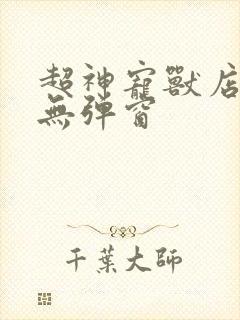 超神寵獸店
無彈窗
千葉大師